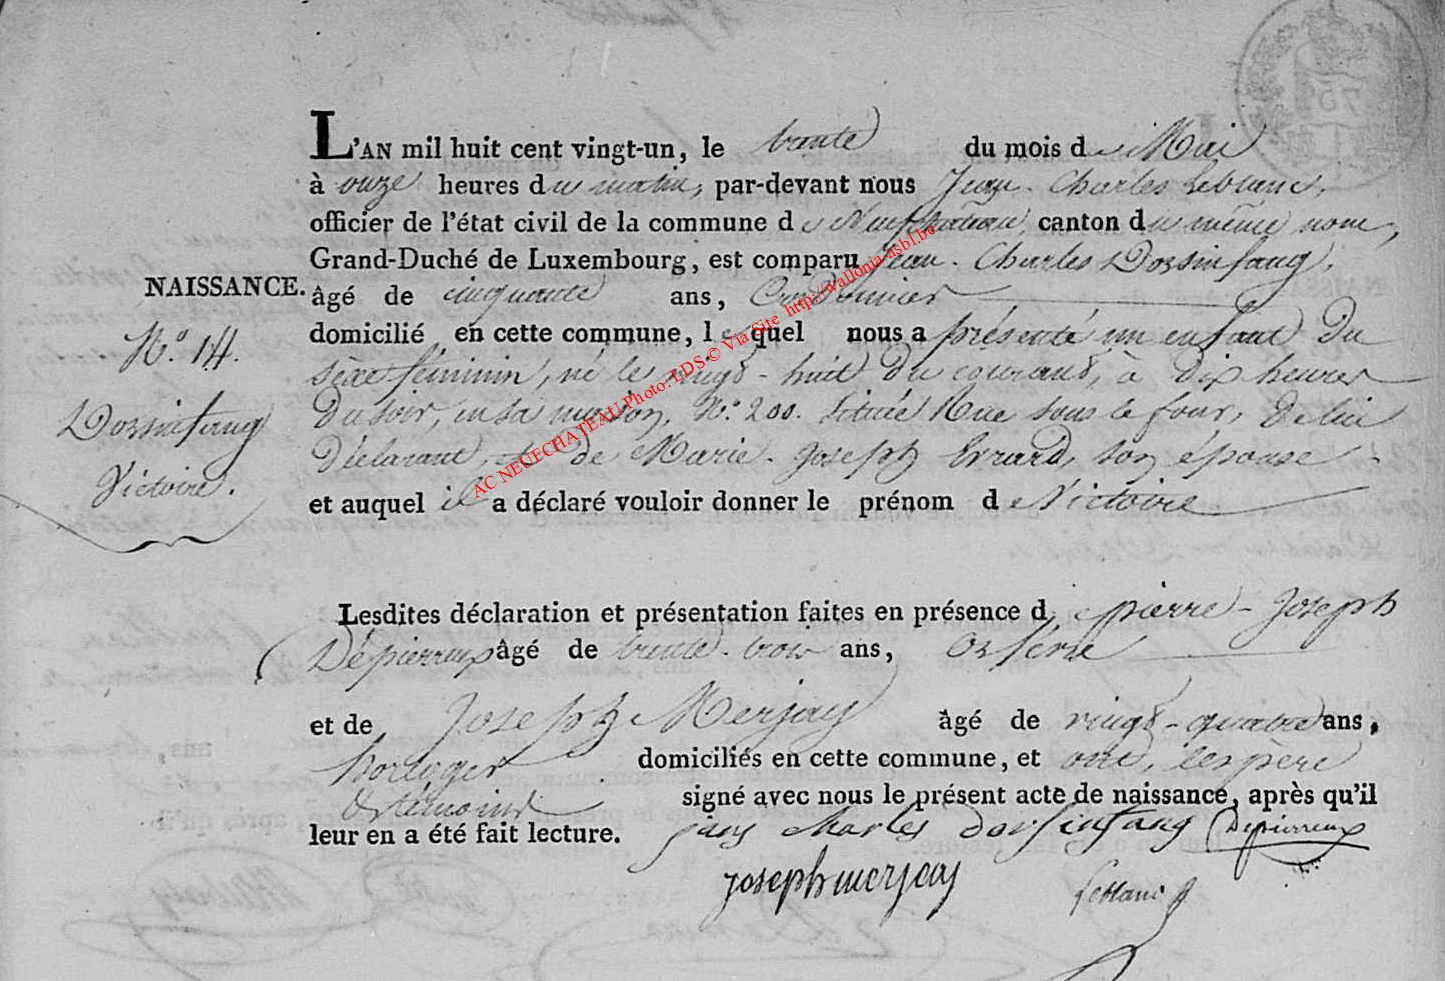 L'AN mil huit cent vingt-un, le trente du mois de Mai
à onze heures du matin, par-devant nous Jean-Charles Leblanc,
officier de l'état civil de la commune de Neufchateau, canton du même nom,
Grand-Duché de Luxembourg, est comparu Jean-Charles Dorsinfang,
NAISSANCE.
âgé de cinquante ans, Cordonnier
domicilié en cette commune, lequel nous a présenté un enfant du
N.° 14.
sèxe féminin, né le vingt-huit du courant, à dix heures
Dorsinfang
du soir, en sa maison, N.° 200. située Rue sous le four, de lui
déclarant, et de Marie-Joseph Errard, son épouse
Victoire.
et auquel il a déclaré vouloir donner le prénom de Victoire
AC NEUFCHATEAU Photo: LDS © Via Site http://wallonia-asbl.be
Lesdites déclaration et présentation faites en présence de pierre-Joseph
Dépierreux âgé de trente-trois ans,
et de Joseph Merjay âgé de vingt-quatre ans,
horloger domiciliés en cette commune, et ont, les père
& témoins signé avec nous le présent acte de naissance, après qu'il
leur en a été fait lecture. jans charles dorsinfang Depierreux
joseph merjay Leblanc
75